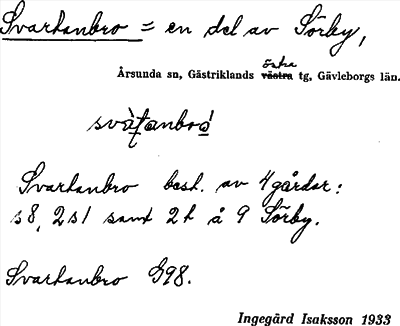 Svartanbro = en del av Sörby,
östra
Årsunda sn, Gästriklands västra tg, Gävleborgs län.
svàṭanbro̱
Svartanbro best. av 4 gårdar:
s8, 2s1 samt 2t å 9 Sörby.
Svartanbro G98.
Ingegärd Isaksson 1933